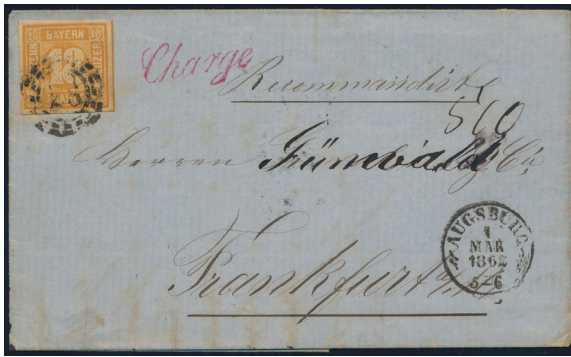 BAYERN
18
Charge
Recommandirt
810
Herren Grünwald & Co
Frankfurt a/M
AUGSBURG
1
MAR
1862
5-6